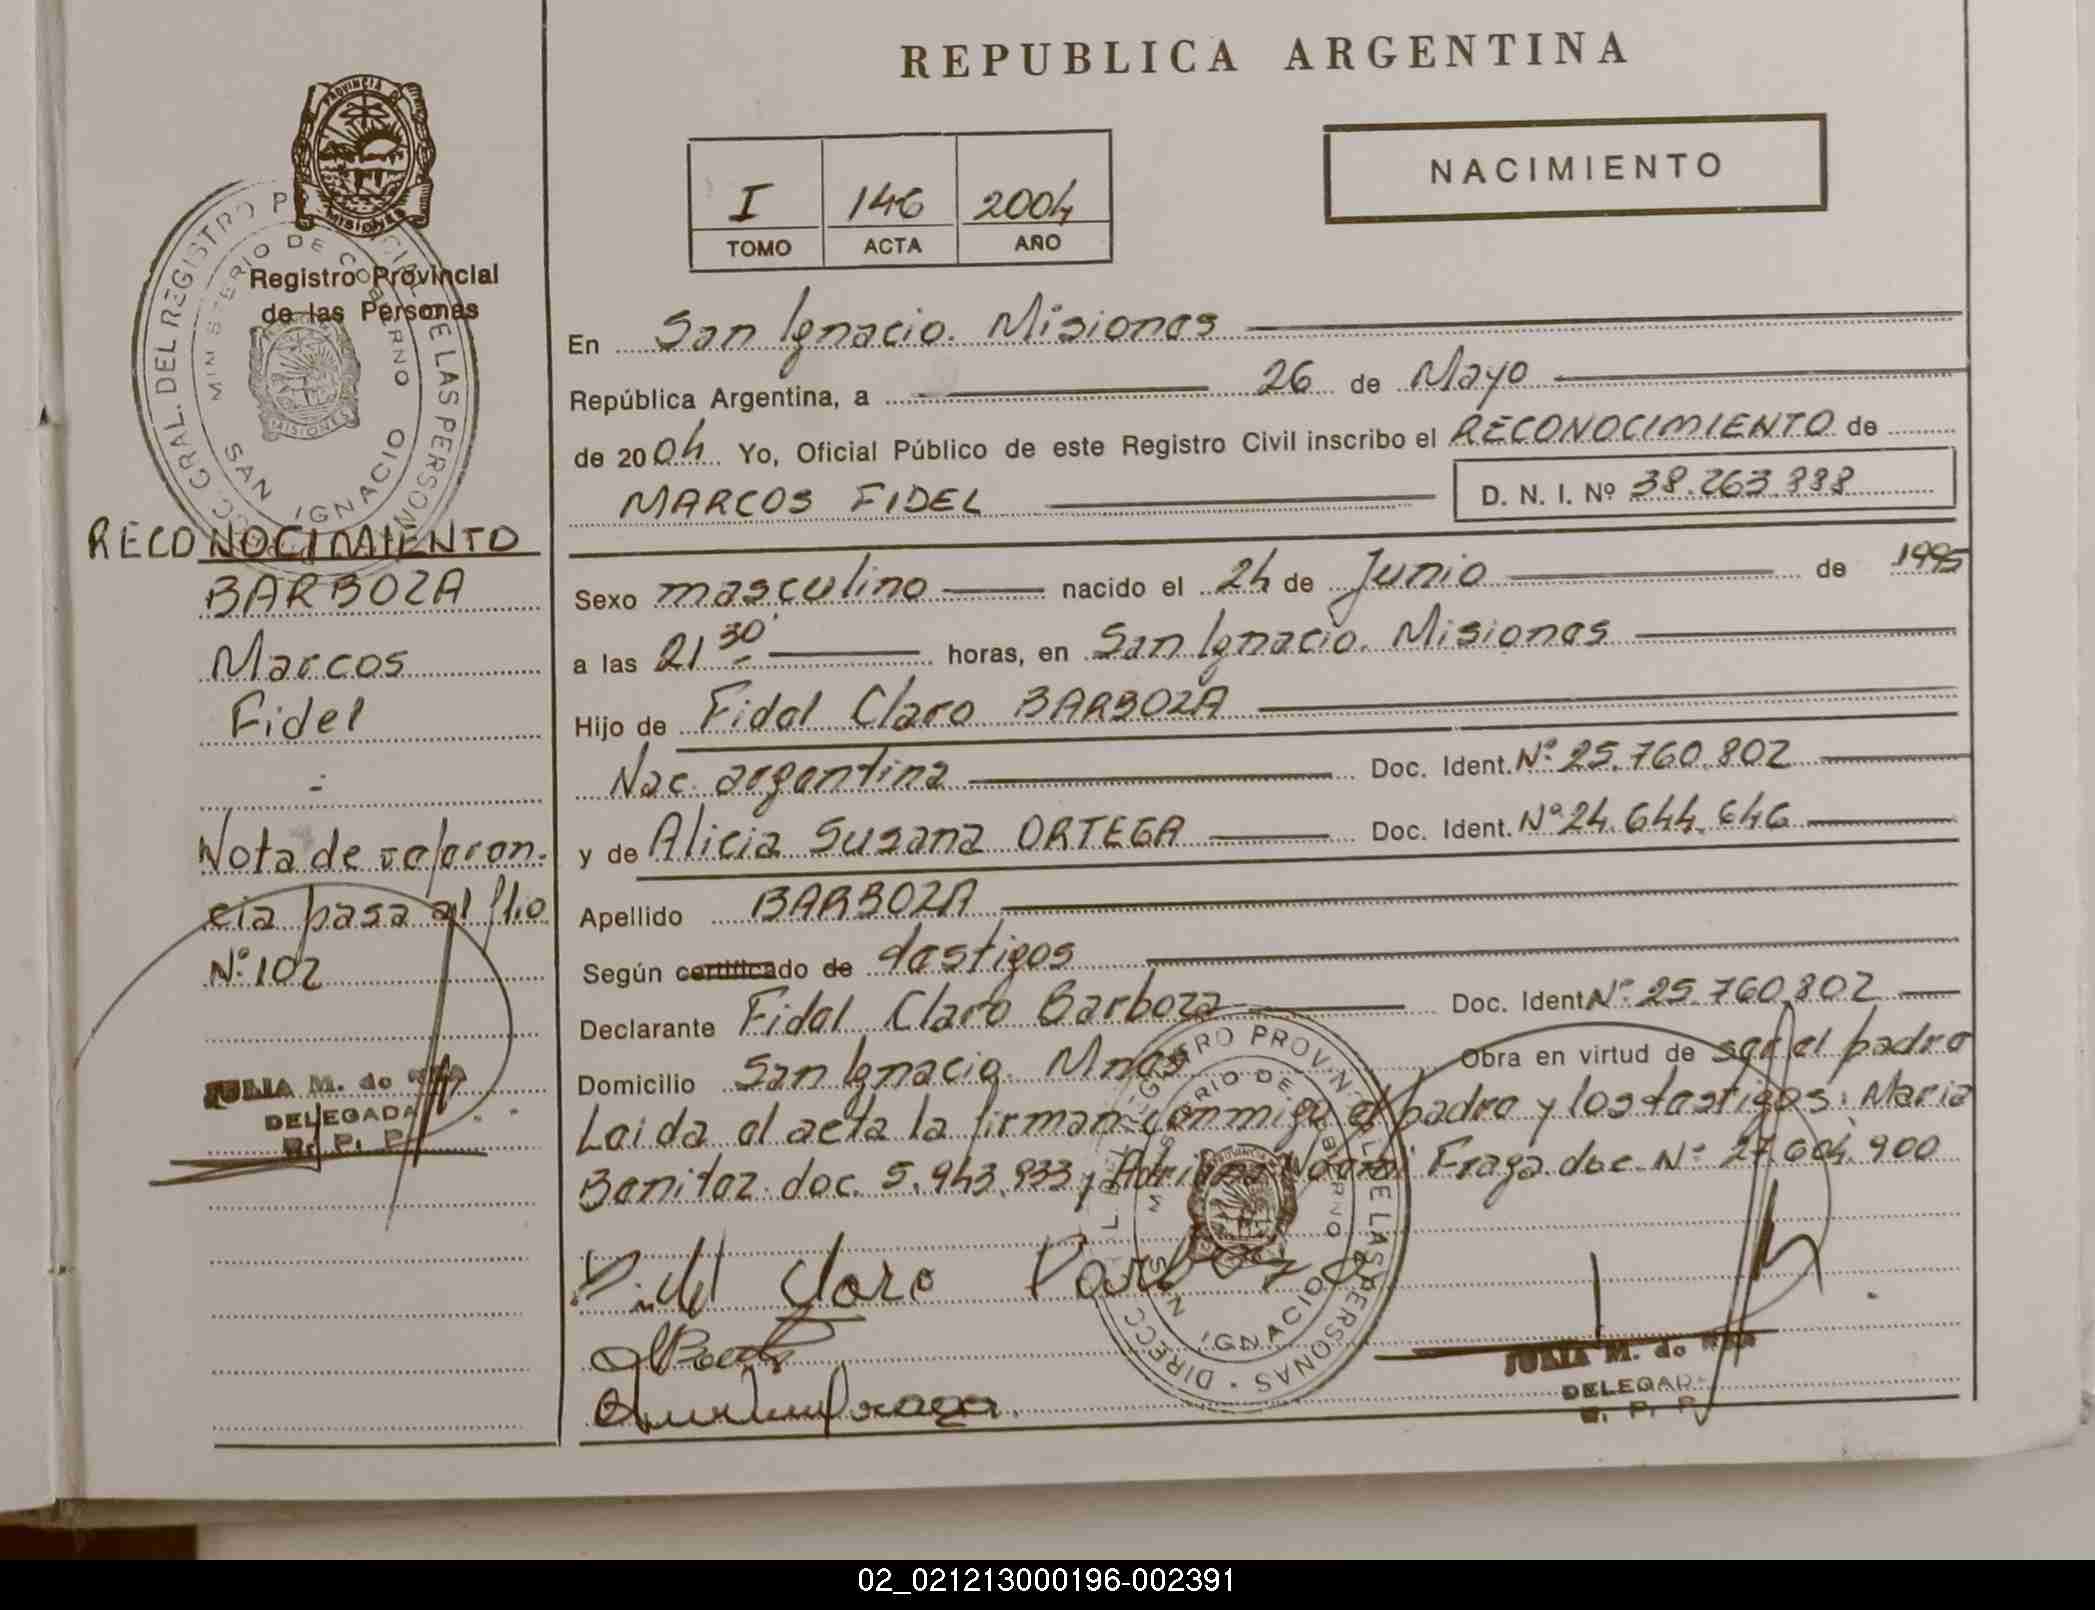 REPUBLICA ARGENTINA
NACIMIENTO
I 146 2004
TOMO ACTA AÑO
PROVINCIA DE MISIONES
Registro Provincial
de las Personas
MINISTERIO DE GOBIERNO
SAN IGNACIO
RECONOCIMIENTO
BARBOZA
Marcos
Fidel
-
Nota de referen-
cia pasa al flio
Nº 102
JULIA M. de
DELEGADA
R. P. P.
En San Ignacio. Misiones
República Argentina, a 26 de Mayo
de 2004 Yo, Oficial Público de este Registro Civil inscribo el RECONOCIMIENTO de
MARCOS FIDEL D. N. I. Nº 38.263.888
Sexo masculino nacido el 24 de Junio de 1995
a las 21 30 horas, en San Ignacio. Misiones
Hijo de Fidel Claro BARBOZA
Nac. argentina Doc. Ident. Nº 25.760.802
y de Alicia Susana ORTEGA Doc. Ident. Nº 24.644.646
Apellido BARBOZA
Según certificado de testigos
Declarante Fidel Claro Barboza Doc. Ident Nº 25.760.802
Domicilio San Ignacio. Mnes Obra en virtud de ser el padre
Leida el acta la firman conmigo el padre y los testigos: Maria
Benitez. doc. 5.943.933 y Adriana Fraga doc. Nº 27.604.900
Fidel Claro Barboza
MINISTERIO DE GOBIERNO
SAN IGNACIO
JULIA M. de
DELEGAD
R. P. P.
02_021213000196-002391